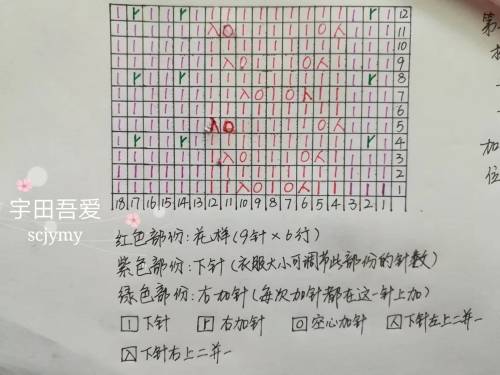 12
11
10
9
8
7
6
5
4
3
2
1
18 17 16 15 14 13 12 11 10 9 8 7 6 5 4 3 2 1
第
加
位
宇田吾爱
scjymy
红色部份:花样(9针×6行)
紫色部份:下针(衣服大小可调节此部份的针数)
绿色部份:右加针(每次加针都在这一针上加)
下针 右加针 空心加针 下针左上二并一
下针右上二并一